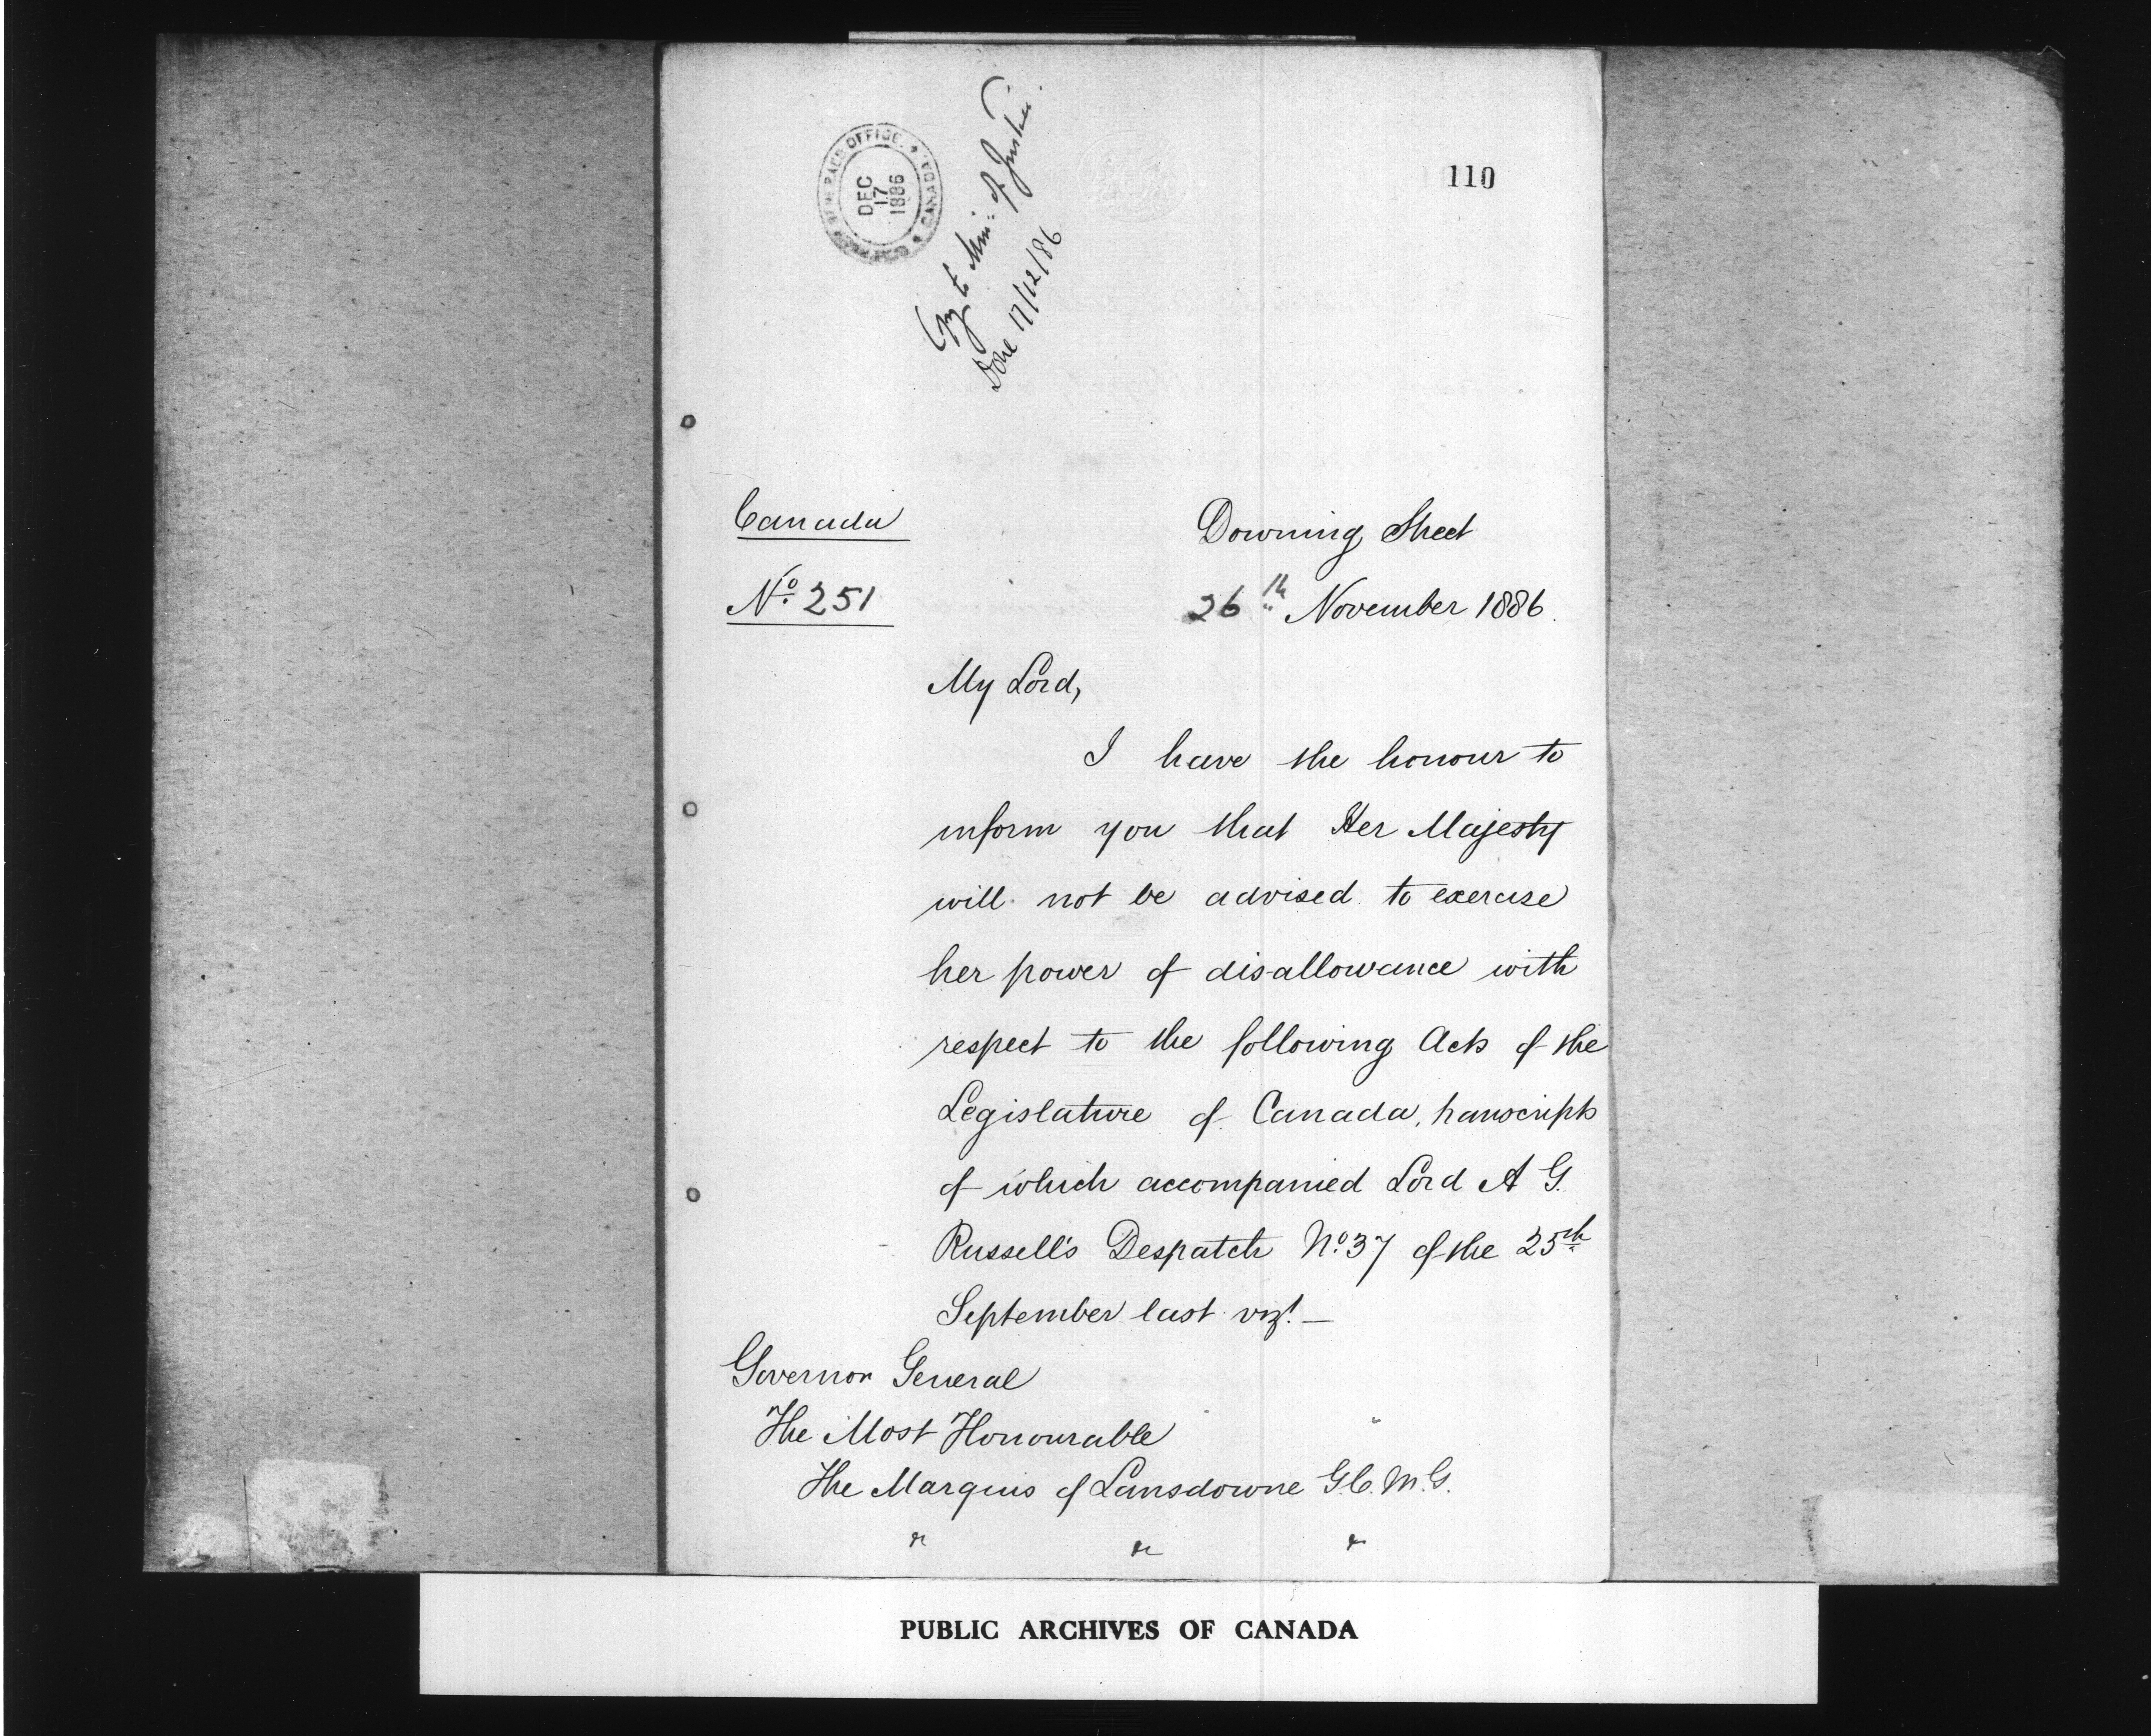 110
GOVERNOR GENERAL'S OFFICE. * CANADA *
DEC
17
1886
Copy to Min: of Justice.
Done 17/12/86
Canada
Nº 251
Downing Street
26th November 1886.
My Lord,
I have the honour to
inform you that Her Majesty
will not be advised to exercise
her power of disallowance with
respect to the following Acts of the
Legislature of Canada, transcripts
of which accompanied Lord A G.
Russell's Despatch Nº 37 of the 25th
September last vizt. —
Governor General
The Most Honourable
The Marquis of Lansdowne G.C.M.G.
&c &c &c
PUBLIC ARCHIVES OF CANADA